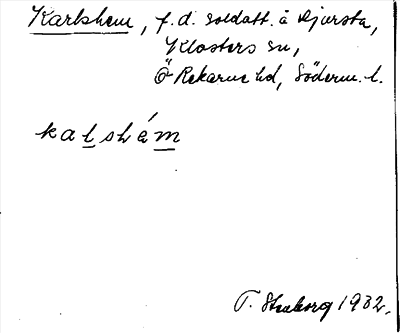 Karlshem, f.d. soldatt. å Djursta,
Klosters sn,
Ö Rekarne hd, Söderm. l.
kalshém
T. 1932.